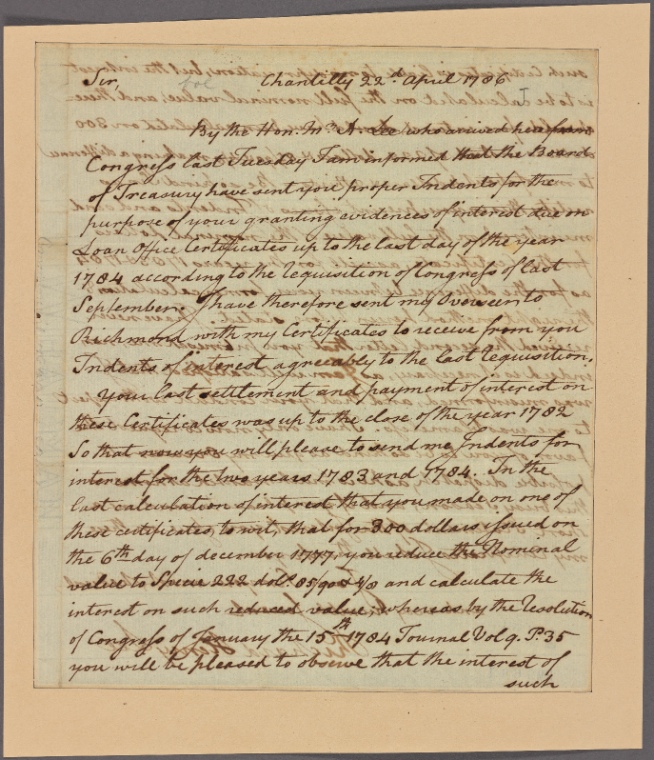 Sir, Chantilly 22d. April 1786
By the Hon. Mr. A. Lee who arrived here from
Congress last Tuesday I am informed that the Board
of Treasury have sent you proper Indents for the
purpose of your granting evidences of interest due on
Loan Office Certificates up to the last day of the year
1784 according to the requisition of Congress of last
September. I have therefore sent my Overseer to
Richmond with my Certificates to receive from you
Indents of interest agreeably to the last requisition.
Your last settlement and payment of interest on
these Certificates was up to the close of the year 1782
So that now you will please to send me Indents for
interest for the two years 1783 and 1784. In the
last calculation of interest that you made on one of
these certificates, to wit, that for 300 dollars issued on
the 6th day of december 1777, you reduce the Nominal
value to Specie 222 dols. 85/90 and calculate the
interest on such reduced value; whereas by the Resolution
of Congress of January the 15th 1784 Journal Vol 9. P. 35
you will be pleased to observe that the interest of
such